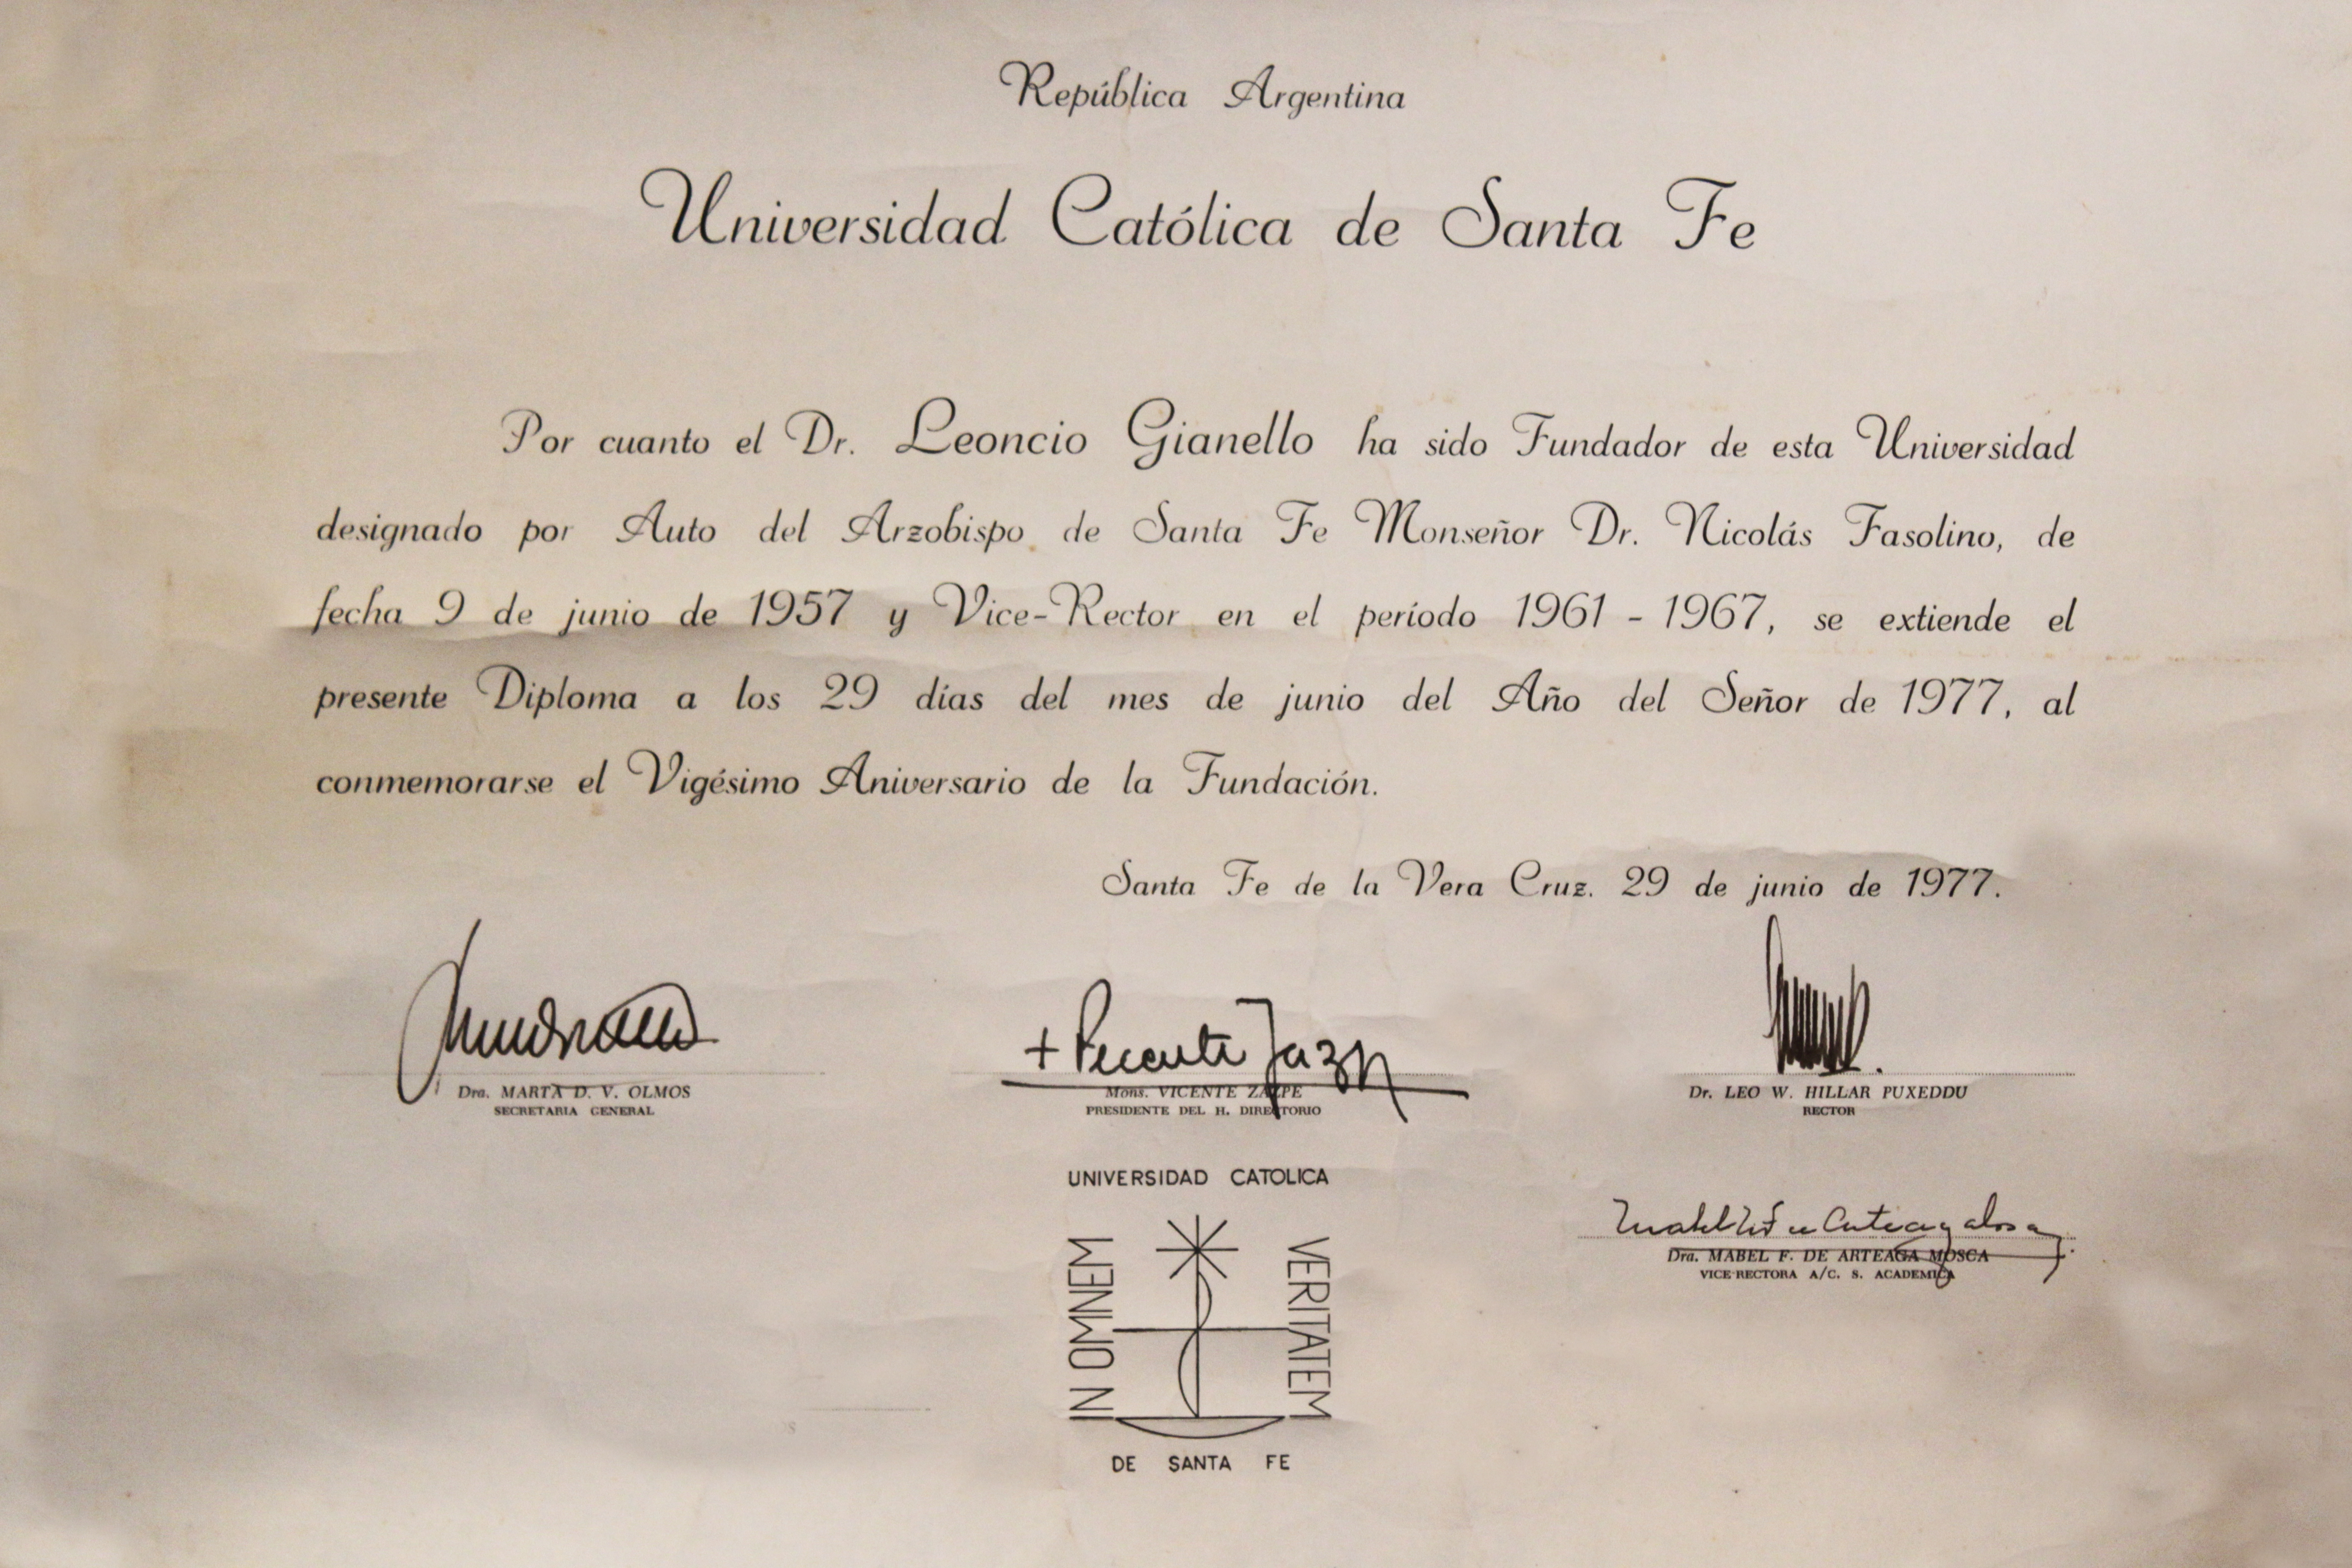 República Argentina
Universidad Católica de Santa Fe
Por cuanto el Dr. Leoncio Gianello ha sido Fundador de esta Universidad
designado por Auto del Arzobispo de Santa Fe Monseñor Dr. Nicolás Fasolino, de
fecha 9 de junio de 1957 y Vice-Rector en el período 1961 - 1967, se extiende el
presente Diploma a los 29 días del mes de junio del Año del Señor de 1977, al
conmemorarse el Vigésimo Aniversario de la Fundación.
Santa Fe de la Vera Cruz. 29 de junio de 1977.
+ Vicente Zazpe
Dra. MARTA D. V. OLMOS
SECRETARIA GENERAL
Mons. VICENTE ZAZPE
PRESIDENTE DEL H. DIRECTORIO
Dr. LEO W. HILLAR PUXEDDU
RECTOR
Dra. MABEL F. DE ARTEAGA MOSCA
VICE-RECTORA A/C. S. ACADEMICA
UNIVERSIDAD CATOLICA
IN OMNEM
VERITATEM
DE SANTA FE